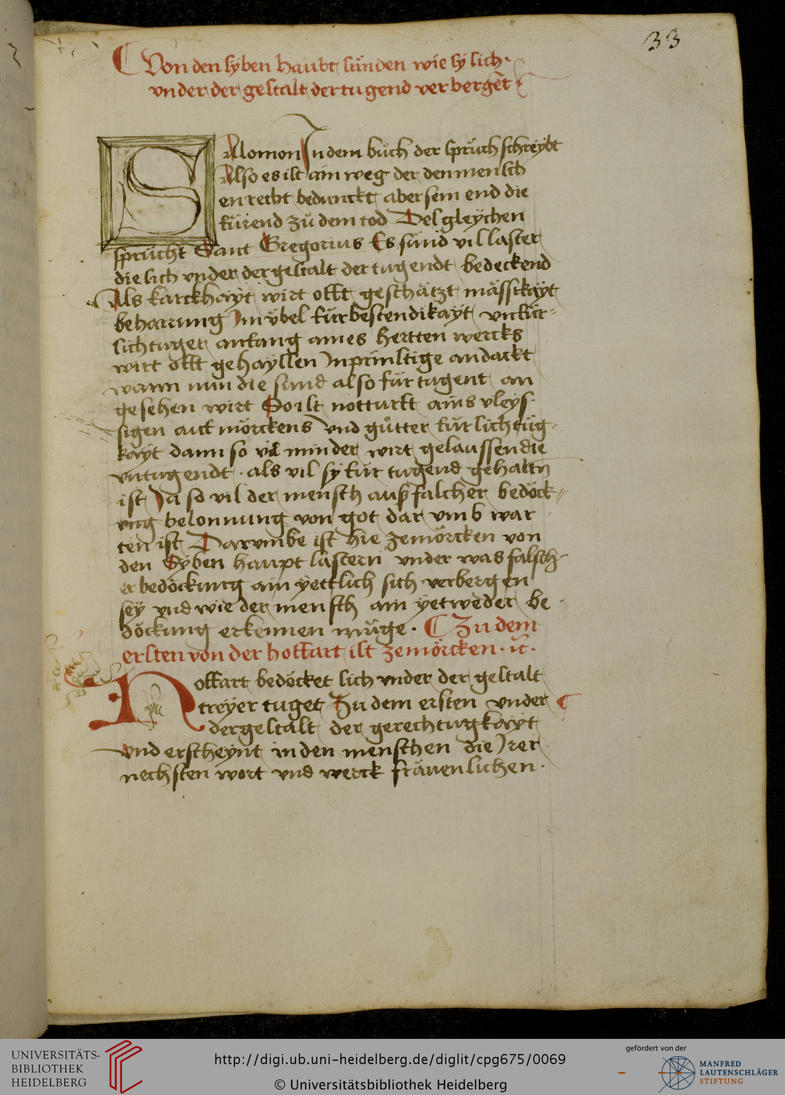 33
Von den syben haubt sünden wie sy sich
vnder der gestalt der tugend verbergēt
Salomon In dem buͦch der spruͤch schreybt
Also es ist ain weg der den mensch
en recht beduncktt aber sein end die
fuͤrend zuͦ dem tod Desgleychen
spruͤcht Sant Gregorius Es sind vil laster
die sich vnder der gestalt der tugendt bedeckend
Als karckhayt wirt offt geschätzt mässikayt
beharrung Im vͤbel fuͤr bestendikayt vnfuͤr
sichtiger anfang aines hertten wercks
wirt offt gehayssen Inprünstige andacht
wann nun die sund also fuͤr tugent an
gesehen wirt So ist notturft ains vleys
sigen auf mörckens vnd guͦtter fuͤrsichtig
kayt dann so vil minder wirt gelaussen die
vntugendt · als vil sy fuͤr tugend gehaltn
ist Ja so vil der mensch auß falscher bedöck
ung belonnung von got dar vmb war
ten ist Darvmbe ist hie zemörcken von
den Syben haupt lastern vnder was falsch
er bedöckung ain yettlich sich verbergen
sey vnd wie der mensch ain yetweder be
döckung erkennen muͤge · Zu dem
ersten von der hoffart ist zemörcken · ꝛc ·
Hoffart bedöcket sich vnder der gestalt
treyer tuget Zu dem ersten vnder
der gestalt der gerechtugkayt
vnd erscheynt in den menschen die Irer
nechsten wort vnd werck frävenlichen ·
UNIVERSITÄTS-
BIBLIOTHEK
HEIDELBERG
http://digi.ub.uni-heidelberg.de/diglit/cpg675/0069
© Universitätsbibliothek Heidelberg
gefördert von der
MANFRED
LAUTENSCHLÄGER
STIFTUNG